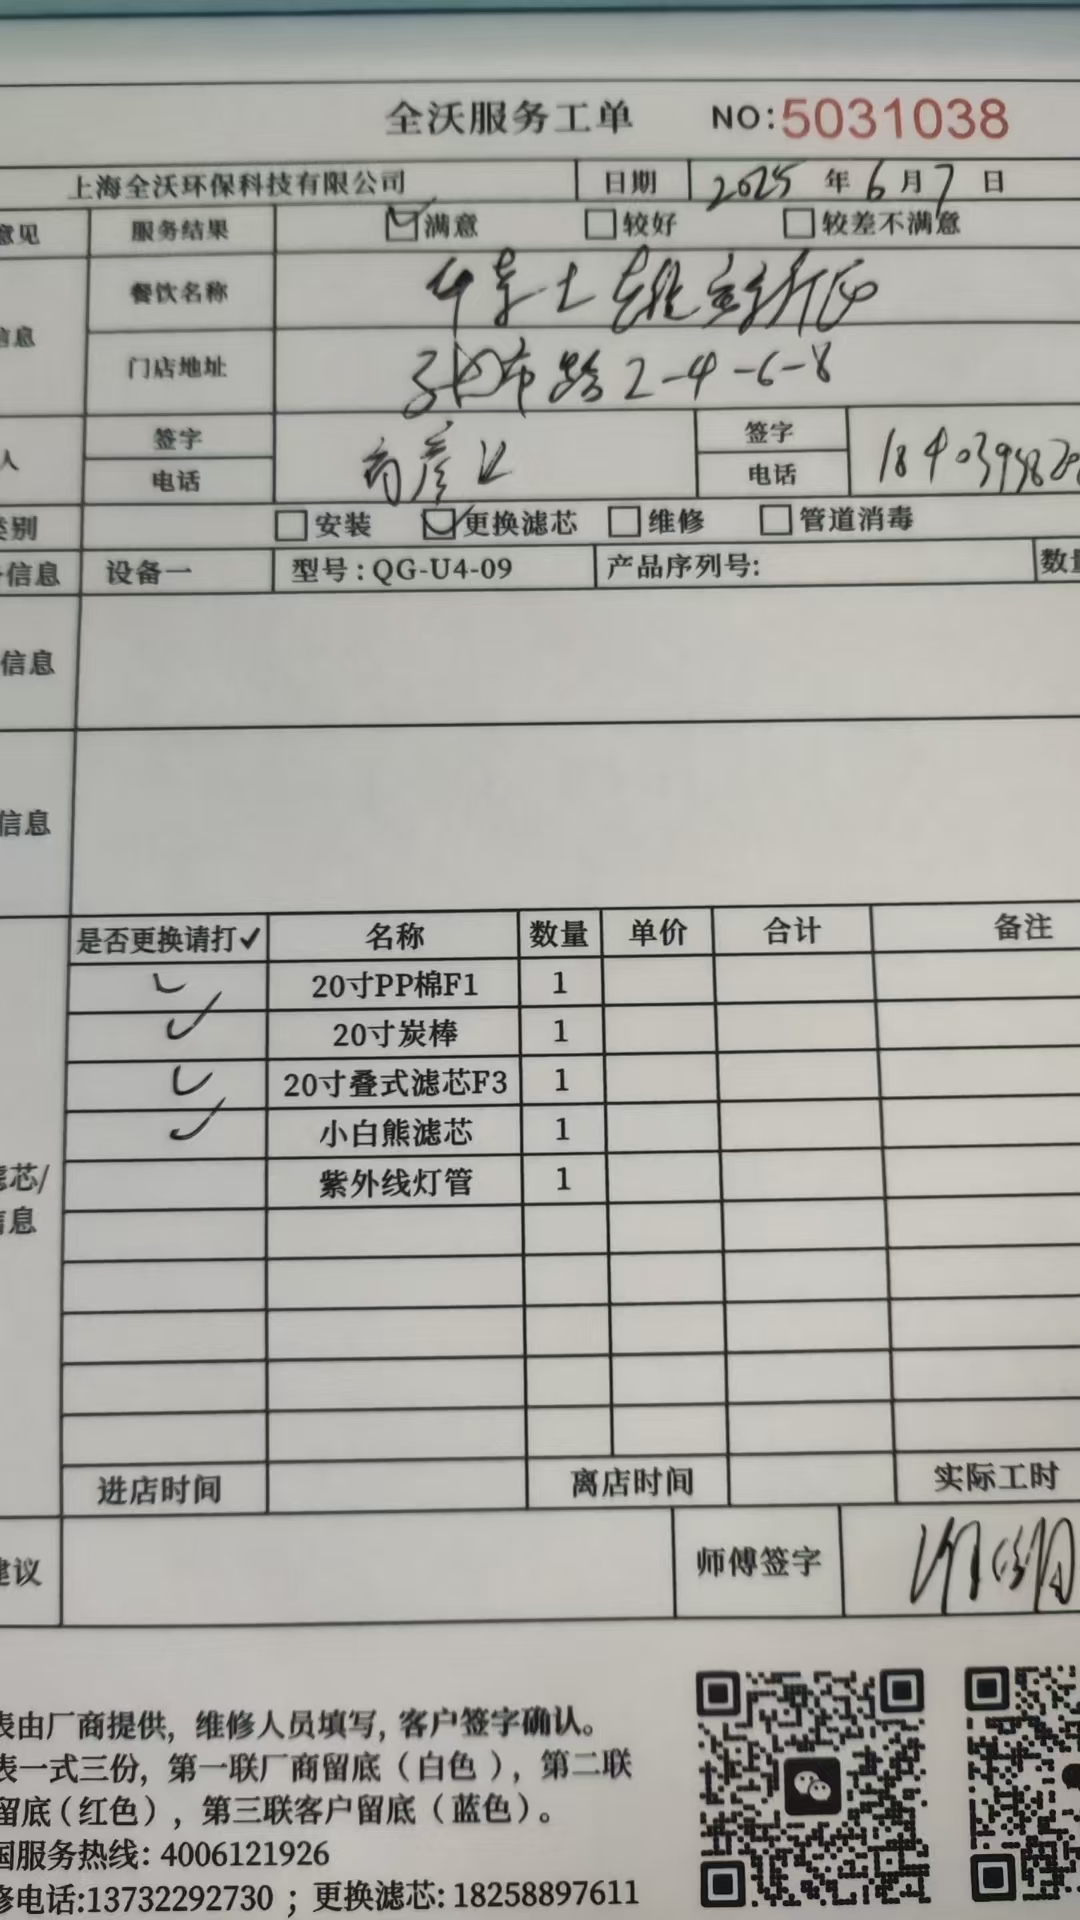 全沃服务工单 NO:5031038
上海全沃环保科技有限公司 日期 2025年6月7日
意见 服务结果 满意 较好 较差不满意
信息 餐饮名称
门店地址 路2-4-6-8
人 签字 签字
电话 电话
类别 安装 更换滤芯 维修 管道消毒
信息 设备一 型号:QG-U4-09 产品序列号: 数量
信息
信息
是否更换请打✓ 名称 数量 单价 合计 备注
✓ 20寸PP棉F1 1
✓ 20寸炭棒 1
✓ 20寸叠式滤芯F3 1
✓ 小白熊滤芯 1
滤芯/ 紫外线灯管 1
信息
进店时间 离店时间 实际工时
建议 师傅签字
表由厂商提供，维修人员填写，客户签字确认。
表一式三份，第一联厂商留底（白色），第二联
留底（红色），第三联客户留底（蓝色）。
国服务热线: 4006121926
修电话:13732292730 ；更换滤芯: 18258897611